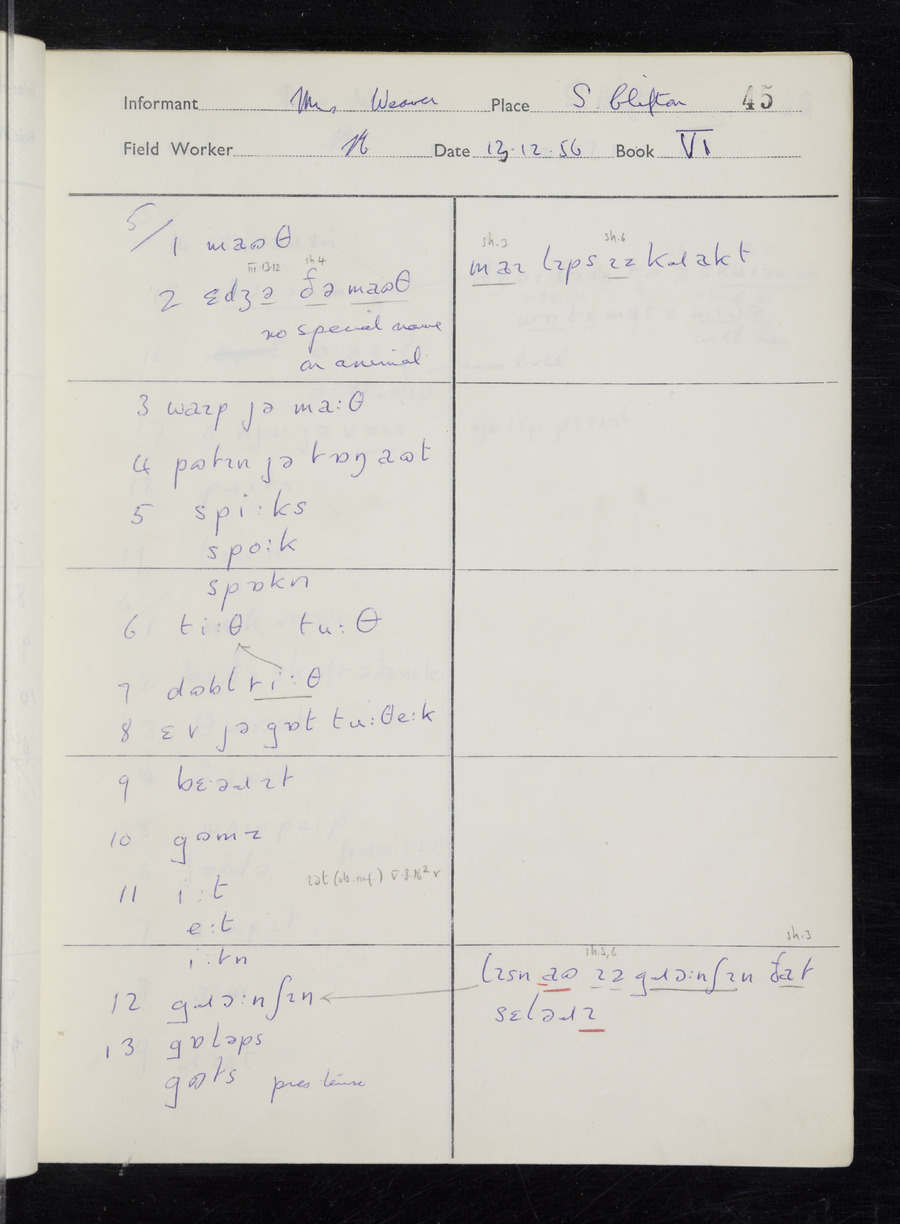 Informant Mrs Weaver Place S Clifton 45
Field Worker Date 13.12.56 Book VI
5/
1 maʊθ
III 13.12 sh.4
2 ɛdʒə ðə maʊθ
no special name
on animal
sh.3 sh.6
maɪ lɪps ɪz kɹakt
3 waɪp jə ma:θ
4 pʊtɪn jə tɒŋ aʊt
5 spi:ks
spo:k
spɒkn
6 ti:θ tu:θ
7 dʊbl ti:θ
8 ɛv jə gɒt tu:θe:k
9 bɛ·əɹɪt
10 gʊmz
11 i:t
e:t
i:tn
12 gɹɔ:nʃɪn
sh.3
sh.3,6
lɪsn aʊ ɪz gɹɔ:nʃɪn ðat
sɛləɹɪ
13 gɒləps
gʊts pres tense